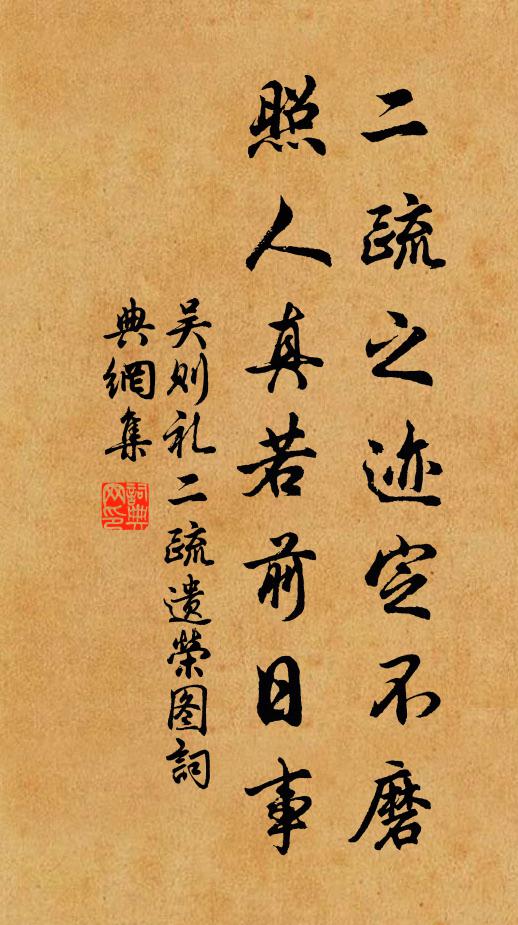 二疏之迹定不磨
照人真若前日事
吴则礼二疏遗荣图词
典網集
詞典網印